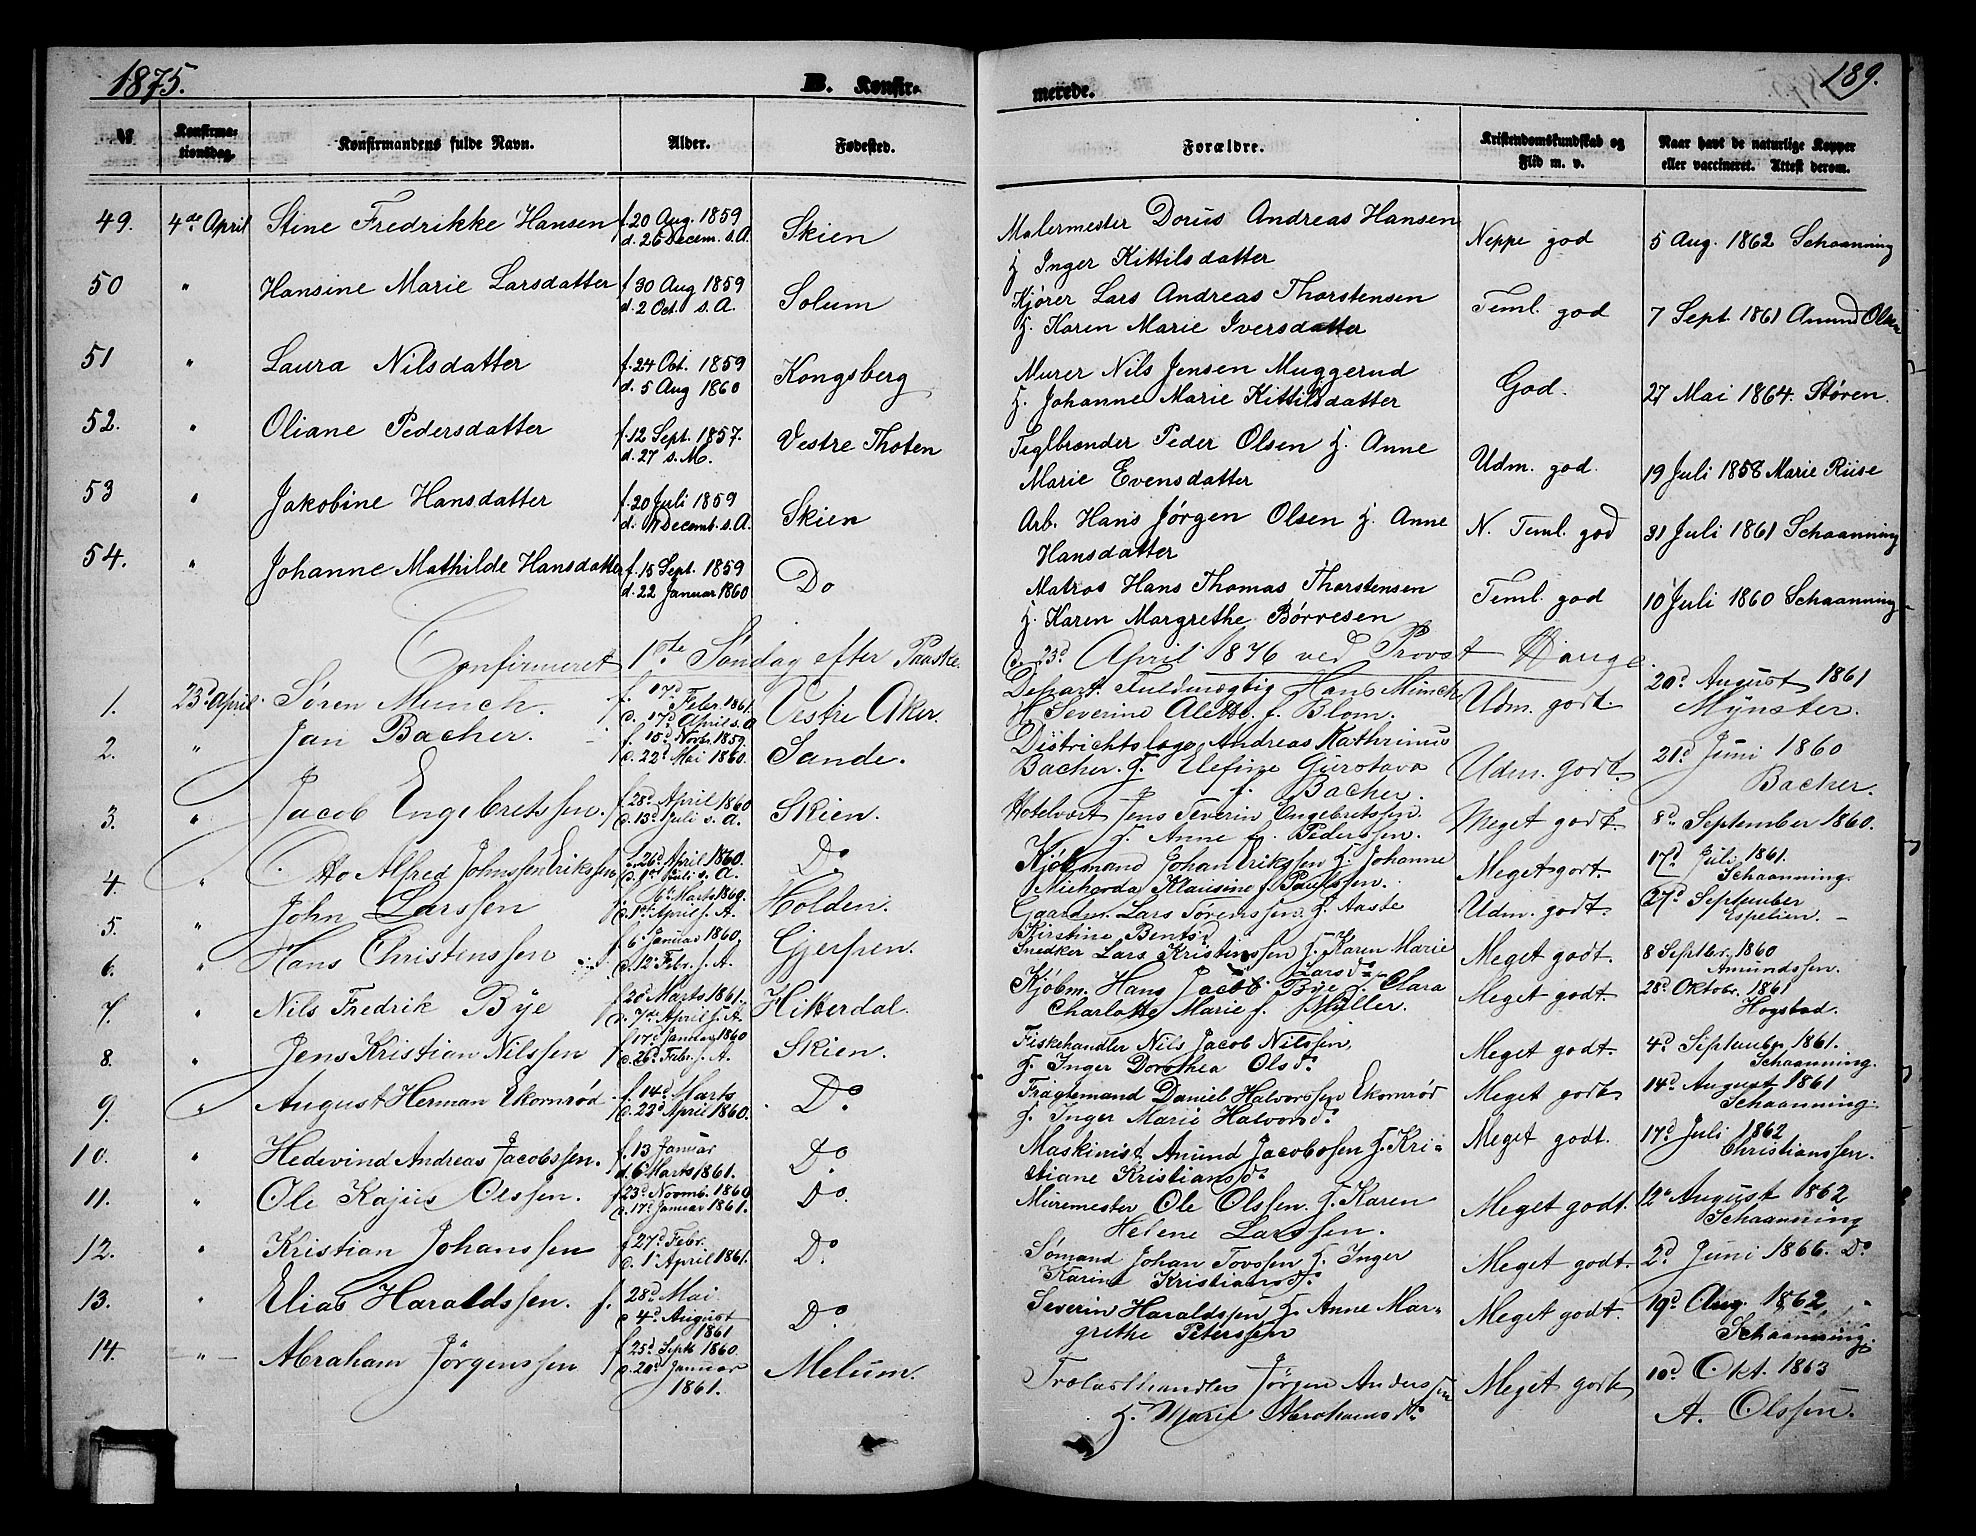 1875.
B. Konfir-
merede.
189.
№
Konfirma-
tionsdag.
Konfirmandens fulde Navn.
Alder.
Fødested.
Forældre.
Kristendomskundskab og
Flid m. v.
Naar havt de naturlige Kopper
eller vaccineret. Attest derom.
49. 4de April Stine Fredrikke Hansen f. 20 Aug. 1859
d. 26 Decem. s. A. Skien
Malermester Dorus Andreas Hansen
H. Inger Kittilsdatter
Neppe god
5 Aug. 1862 Schaanning
50 " Hansine Marie Larsdatter f 30 Aug 1859
d. 2 Oct. s. A. Solum
Kjører Lars Andreas Thorstensen
H. Karen Marie Iversdatter
Teml. god
7 Sept. 1861 Amund Olsen
51 " Laura Nilsdatter f. 24 Oct. 1859
d. 5 Aug 1860 Kongsberg
Murer Nils Jensen Muggerud
H. Johanne Marie Kittilsdatter
God.
27 Mai 1864. Støren.
52. " Oliane Pedersdatter f. 12 Sept. 1857.
d. 27 s. M. Vestre Thoten
Teglbrænder Peder Olsen H. Anne
Marie Evensdatter
Udm. god.
19 Juli 1858 Marie Riise
53 " Jakobine Hansdatter f. 20 Juli 1859
d. 11 Decemb. s. A. Skien
Arb. Hans Jörgen Olsen H. Anne
Hansdatter
N. Teml. god
31 Juli 1861 Schaanning
54. " Johanne Mathilde Hansdatter f. 15 Sept. 1859
d. 22 Januar 1860 Do
Matros Hans Thomas Thorstensen
H. Karen Margrethe Börresen
Teml. god
10 Juli 1860 Schaanning
Confirmeret 1ste Søndag efter Paaske
d. 23d April 1876 ved Provst Hauge.
1. 23d April. Søren Munch. f. 17d Febr. 1861.
d. 17d April s. A. Vestre Aker.
Depart. Fuldmægtig Hans Münch
H. Severine Alette f. Blom.
Udm. godt.
20d August 1861
Mynster.
2. " Jan Bacher. f. 15d Novbr. 1859.
d. 22d Mai 1860. Sande.
Distriktslæge Andreas Kathrinus
Bacher. H. Elefine Gustava
f. Bacher.
Udm. godt.
21d Juni 1860
Bacher.
3. " Jacob Engebretssen. f. 28d April 1860
d. 13d Juli s. A. Skien.
Hotelvært Jens Severin Engebretssen.
H. Anne f. Pederssen.
Meget godt.
8d September 1860.
4 " Otto Alfred Johnssen Erikssen f. 26d April 1860.
d. 1st Juli s. A. Do
Kjøbmand Johan Erikssen H. Johanne
Klausine f. Paulssen.
Meget godt.
17d Juli 1861.
Schaanning.
5. " John Larssen f. 6te Marts 1860.
d. 1st April s. A. Holden.
Gaardm. Lars Sørenssen. H. Aaste
Kirstine Bentsd
Udm. godt.
27d September
Espelien.
6. " Hans Christenssen f. 6 Januar 1860.
d. 12 Febr. s. A. Gjerpen.
Snedker Lars Kristenssen H. Karen Marie
Larsdr
Meget godt.
8 Septbr. 1860
Amundssen.
7. " Nils Fredrik Bye f. 20d Marts 1861.
d. 7de April s. A. Hitterdal.
Kjøbm. Hans Jacob Bye H. Clara
Charlotte Marie f. Müller.
Meget godt.
28d Oktobr. 1861
Hogstad.
8. " Jens Kristian Nilssen f. 17d Januar 1860
d. 26d Febr. s. A. Skien.
Fiskehandler Nils Jacob Nilssen,
H. Inger Dorothea Olsdr
Meget godt.
4d Septembr 1861.
Schaanning.
9. " August Herman Ekornrød. f. 14d Marts
d. 22d April 1860. Do
Fragtemand Daniel Halvorssen Ekornrød
H. Inger Marie Halvorsdr
Meget godt.
14d August 1861
Schaanning.
10. " Hedevind Andreas Jacobssen. f. 13 Januar
d. 6 Marts 1861. Do
Maskinist Amund Jacobssen H. Kri-
stiane Kristiansdr
Meget godt.
17d Juli 1862
Christianssen.
11. " Ole Kajus Olssen. f. 23d Novmb. 1860
d. 17d Januar 1861. Do.
Muremester Ole Olssen. H. Karen
Helene Larssen.
Meget godt.
12te August 1862
Schaanning
12. " Kristian Johanssen f. 27d Febr.
d. 1st April 1861. Do.
Sømand Johan Tovssen H. Inger
Karine Kristiansdr.
Meget godt.
2d Juni 1866. Do
13. " Elias Haraldssen. f. 28d Mai
d 4d August
1861 Do
Severin Haraldssen H. Anne Mar-
grethe Peterssen
Meget godt.
19d Aug. 1862
Schaanning.
14. " Abraham Jörgenssen f. 25d Septb 1860.
d. 20d Januar
1861. Melum.
Jörgen Anderssen
H. Marie Abrahamsdr
Meget godt
10d Okt. 1863
A. Olssen.